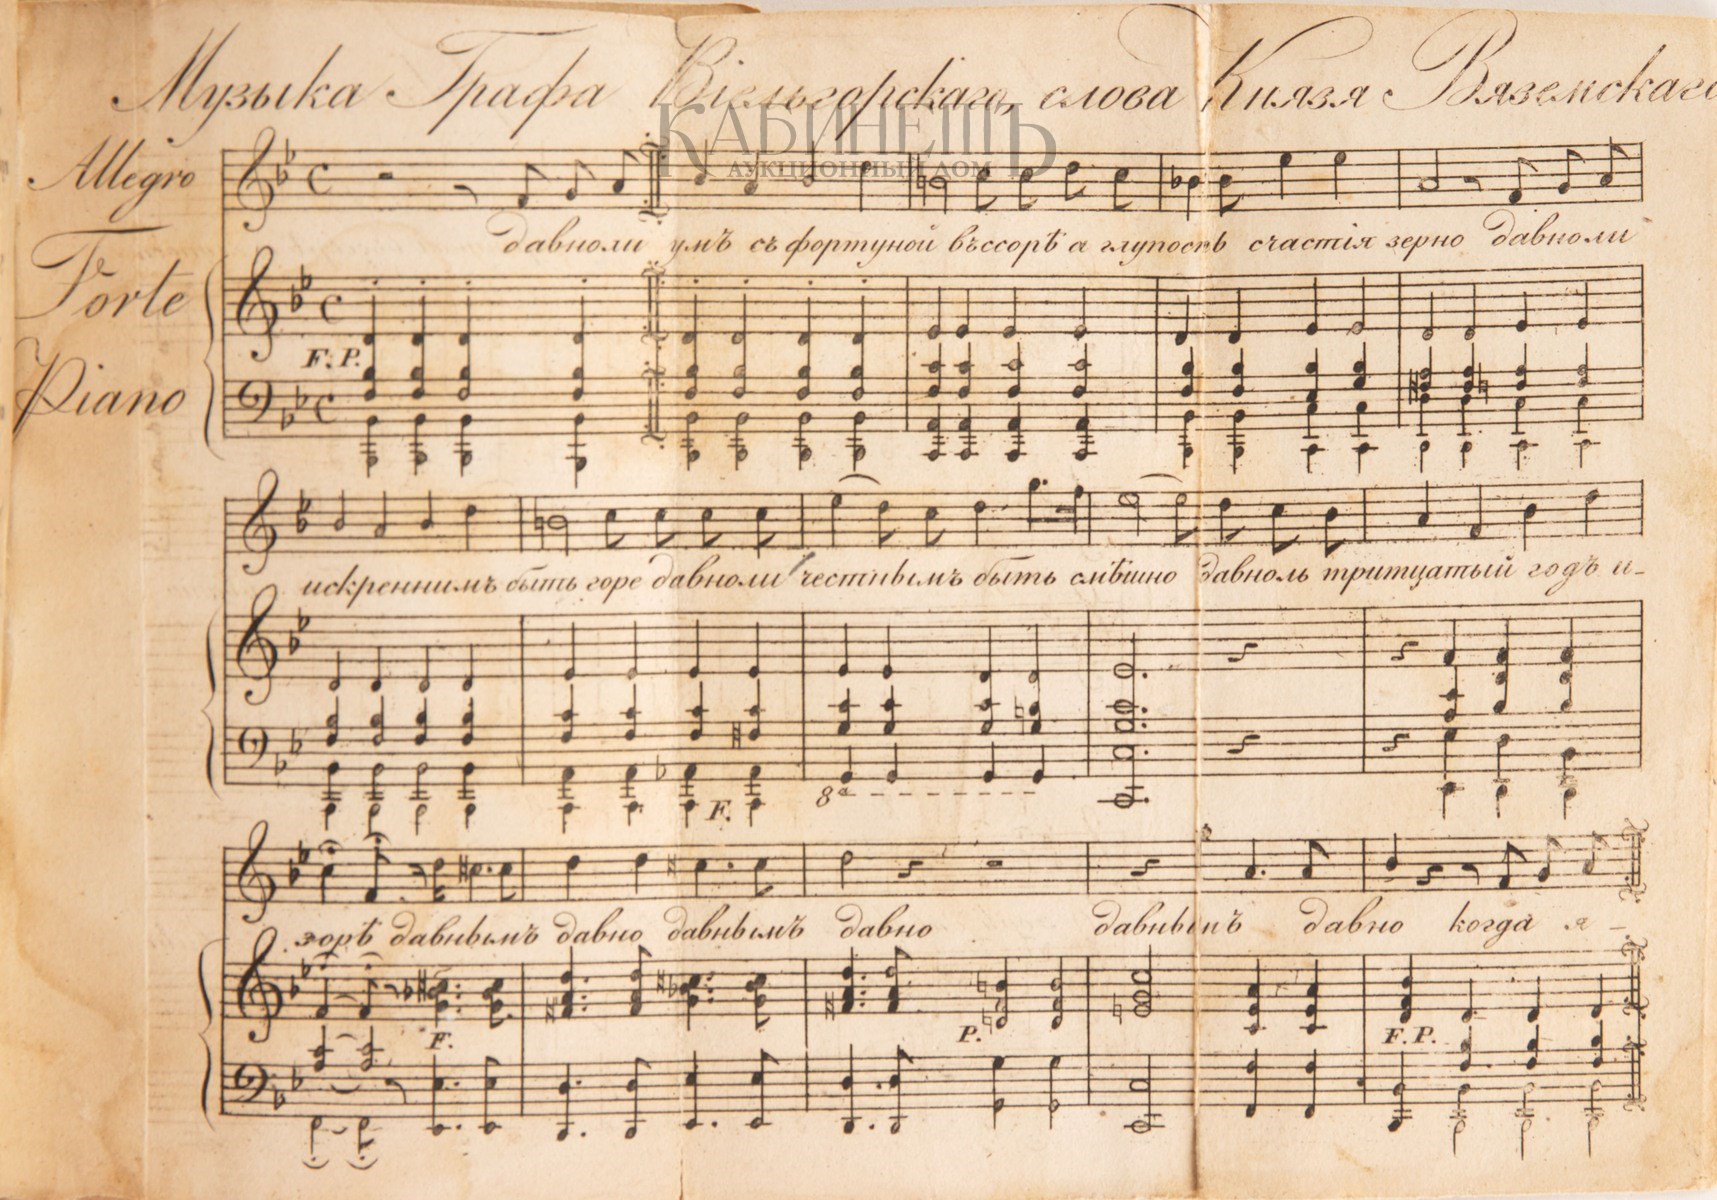 Музыка Графа Віельгорскаго, слова Князя Вяземскаго
КАБИНЕТЪ
АУКЦИОННЫЙ ДОМ
Allegro
давноли умъ съ фортуной въссорѣ а глупость счастія зерно давноли
Forte
F. P.
Piano
искреннимъ быть горе давноли честнымъ быть смѣшно давноль тритцатый годъ и-
F.
8ª
зорѣ давнымъ давно давнымъ давно давнымъ давно когда я-
F.
P.
F. P.